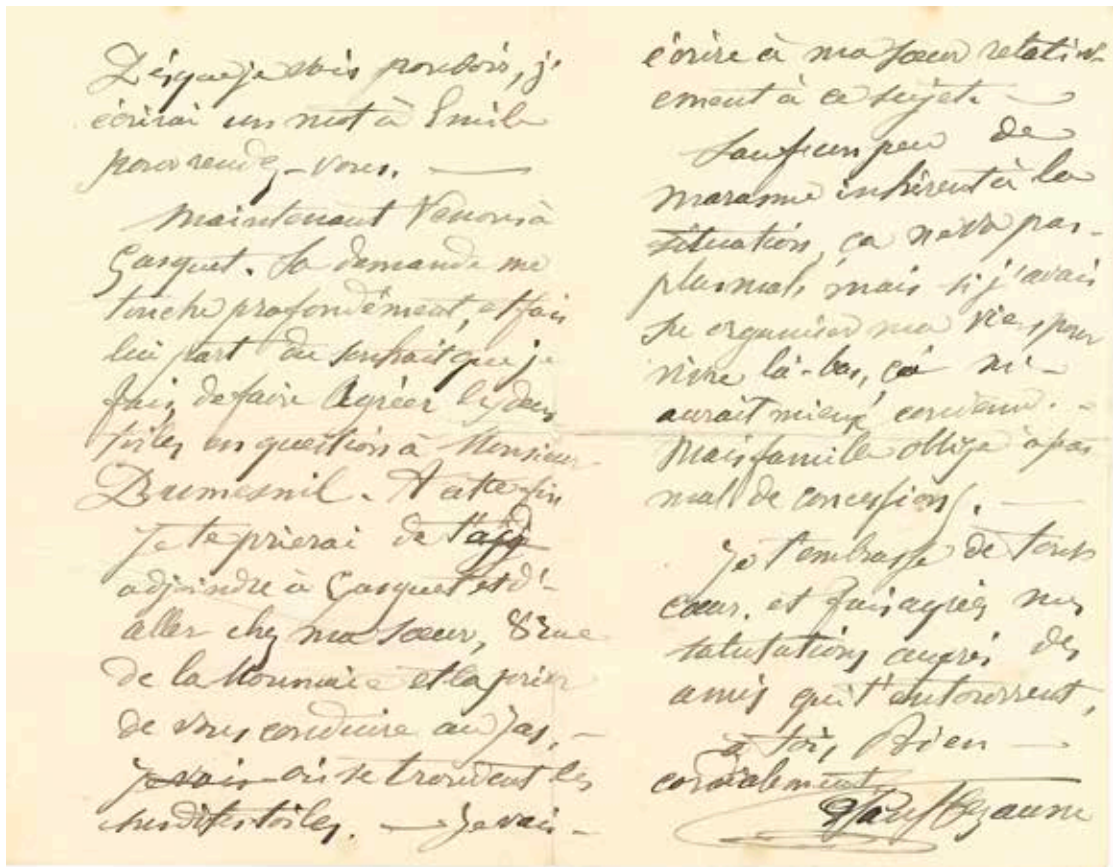 Dès que je vais pouvoir, j'
écrirai un mot à Emile
pour rendez-vous. —
Maintenant Venons à
Gasquet. Sa demande me
touche profondément, et fais
lui part du souhait que je
fais, de faire Agréer les deux
toiles en question à Monsieur
Dumesnil. A cette fin
je te prierai de t'
adjoindre à Gasquet et d'
aller chez ma sœur, 8 rue
de la Monnaie et la prier
de vous conduire au Jas, —
je vais où se trouvent les
susdites toiles. — Je vais —
écrire à ma sœur relativ-
ement à ce sujet. —
Sauf un peu de
marasme inhérent à la
situation, ça ne va pas —
plus mal, mais si j'avais
su organiser ma vie, pour
vivre là-bas, ça m' —
aurait mieux convenu. —
Mais famille oblige à pas
mal de concessions. —
Je t'embrasse de tout
cœur, et fais agréer mes
salutations auprès des
amis qui t'entourent,
à toi, Bien —
cordialement,
Paul Cezanne